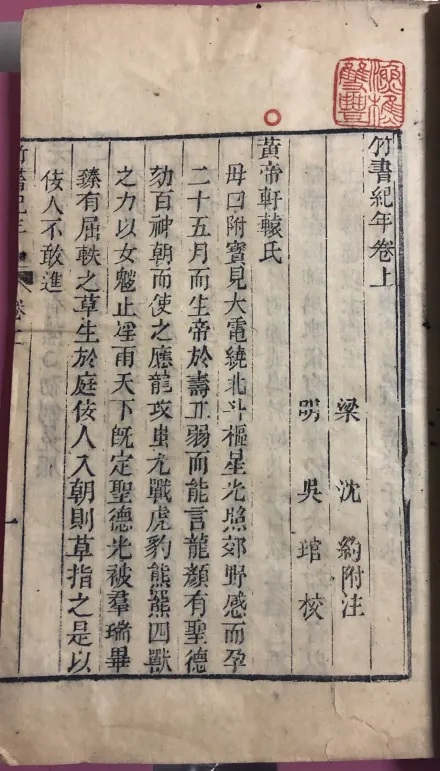 竹書紀年卷上
梁 沈 約附注
明 吳 琯 校
黃帝軒轅氏
母曰附寶見大電繞北斗樞星光照郊野感而孕
二十五月而生帝於壽丘弱而能言龍顏有聖德
劾百神朝而使之應龍攻蚩尤戰虎豹熊羆四獸
之力以女魃止淫雨天下旣定聖德光被羣瑞畢
臻有屈軼之草生於庭佞人入朝則草指之是以
佞人不敢進
竹書紀年 卷上 一